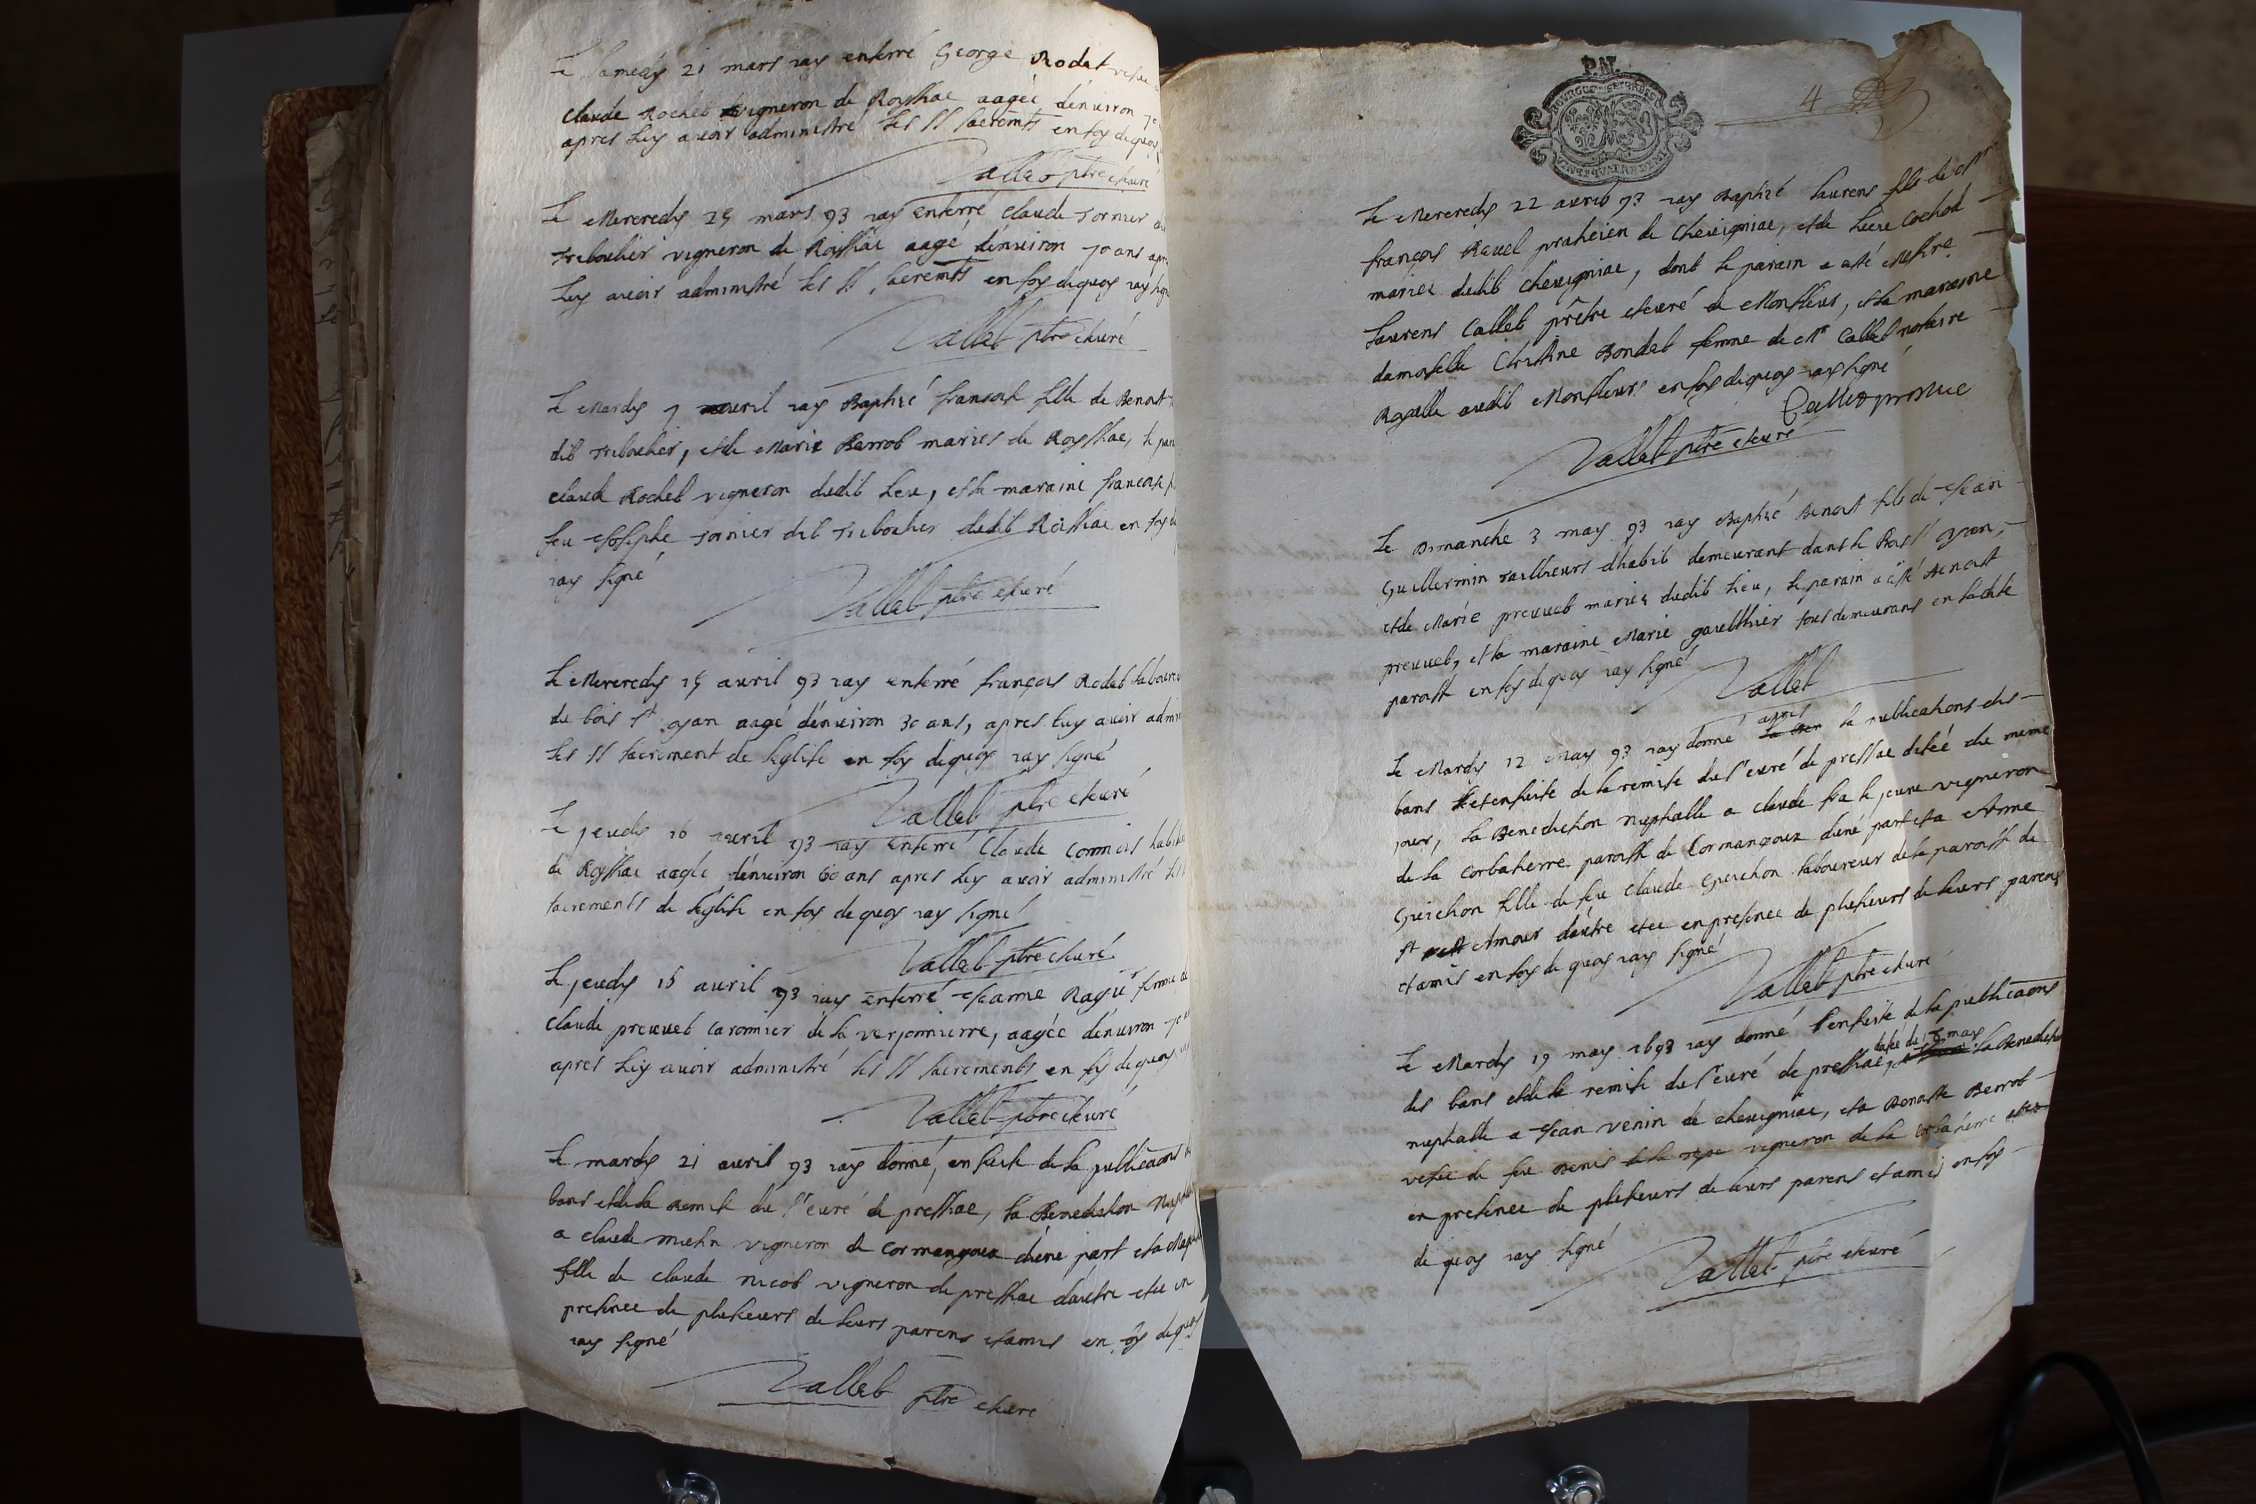 Le samedy 21 mars jay enterré George Rodet
claude Rochet vigneron de Royssiac aagée denviron
apres luy avoir administré les SS sacremts en foy dequoy
Vallet ptre et curé
Le Mercredy 25 mars 93 jay enterré claude Tornier
Treboulier vigneron de Roissiac aagé denviron 70 ans
luy avoir administré les SS sacremts en foy dequoy jay
Vallet ptre et curé
Le Mardy 7 avril jay Baptizé francoise fille de Benoist
dit Treboulier, et de Marie Perrot mariés de Royssiac, le
claude Rochet vigneron dudit lieu, et la maraine francoise
feu Josephe Tornier dit Treboulier dudit Roissiac en foy
jay signé
Vallet ptre et curé
Le Mercredy 15 avril 93 jay enterré françois Rodet
du bois St oyan aagé denviron 30 ans, apres luy avoir
les SS sacrement de leglise en foy dequoy jay signé
Vallet ptre et curé
Le jeudy 16 avril 93 jay enterré Claude
de Royssiac aagée denviron 60 ans apres luy avoir administré
sacrements de leglise en foy de quoy jay signé
Vallet ptre et curé
Le jeudy 16 avril 93 jay enterré Jeanne femme
claude preuvet de la verjonnierre, aagée denviron
apres luy avoir administré les SS sacrements en foy dequoy
Vallet ptre et curé
Le mardy 21 avril 93 jay donné, en suite de la publicaons
bans et de la Remise du Sr curé de pressiac, la Benediction
a claude vigneron de Cormangoux dune part et a
fille de claude Nicod vigneron de pressiac dautre et ce en
presence de plusieurs de leurs parens et amis en foy dequoy
jay signé
Vallet ptre et curé
P.M.
4
Le Mercredy 22 avril 93 jay Baptizé Laurens fils de Mr
françois Revel praticien de Chevigniac, et de Cochod
mariés dudit Chevigniac, dont le parain a esté Messre
Laurens Vallet prêtre et curé de Monfleur, et la maraine
damoiselle Christine Bondet femme de Mr Callet notaire
Royalle audit Monfleurs en foy dequoy jay signé
Vallet ptre et curé
Le Dimanche 3 may 93 jay Baptizé Benoit fils de Jean
Guillermin tailleurs dhabit demeurant dans le Bois St oyan,
et de Marie preuvet mariés dudit lieu, le parain a esté Benoist
preuvet, et la maraine Marie gaulthier tous demeurans en ladite
paroisse en foy dequoy jay signé
Vallet
Le Mardy 12 May 93 jay donné apres la publications des
bans et ensuite de la remise du Sr curé de pressiac datée du meme
jour, la Benediction nuptialle a Claude le jeune vigneron
de la Corbaterre paroisse de Cormangoux dune part et a Anne
Guichon fille de feu Claude Guichon laboureur de la paroisse de
St Amour dautre et ce en presence de plusieurs de leurs parens
et amis en foy de quoy jay signé
Vallet ptre et curé
Le Mardy 19 may 1693 jay donné ensuite de la publicaons
datée du may
des bans et de la remise du Sr curé de pressiac, la Benediction
nuptialle a Jean Venin de chevigniac, et a Benoite Perrot
vefve de feu Denis vigneron de la
en presence de plusieurs de leurs parens et amis en foy
de quoy jay signé
Vallet ptre et curé